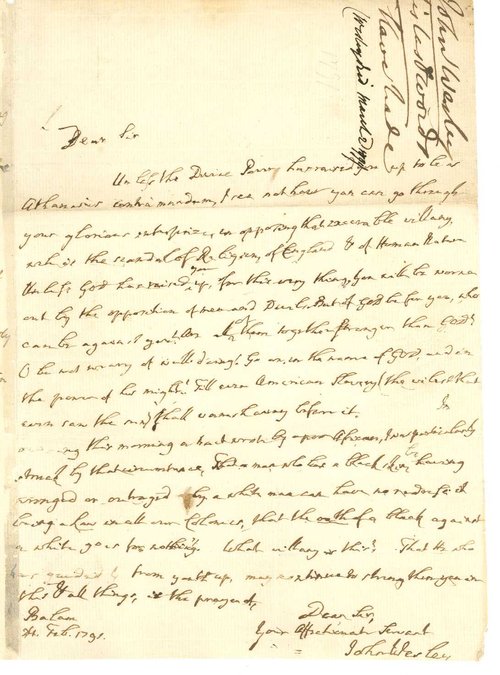 John Wesley
last words
Slave trade
(Wesley died March 2 1791)
Dear Sir
Unless the Divine Power has raised you up to be as
Athanasius contra mundum, I see not how you can go through
your glorious enterprize, in opposing that execrable villany
which is the scandal of Religion, of England & of Human Nature
Unless God has raised you up, for this very thing, you will be worn
out by the opposition of men and Devils. But if God be for you, who
can be against you? Are all of them together stronger than God?
O be not weary of well doing! Go on, in the name of GOD, and in
the power of his might! Till even American Slavery (the vilest that
ever saw the sun) shall vanish away before it. In
reading this morning a tract wrote by a poor African, I was particularly
struck by that circumstance, That a man who has a black skin, being
wronged or outraged by a white man can have no redress: it
being a Law in all our Colonies, that the oath of a black against
a white goes for nothing. What villany is this? That He who
has guided from youth up, may continue to strengthen you in
this & all things, is the prayer of,
Dear Sir,
Balam
24. Feb. 1791
Your Affectionate Servant
John Wesley